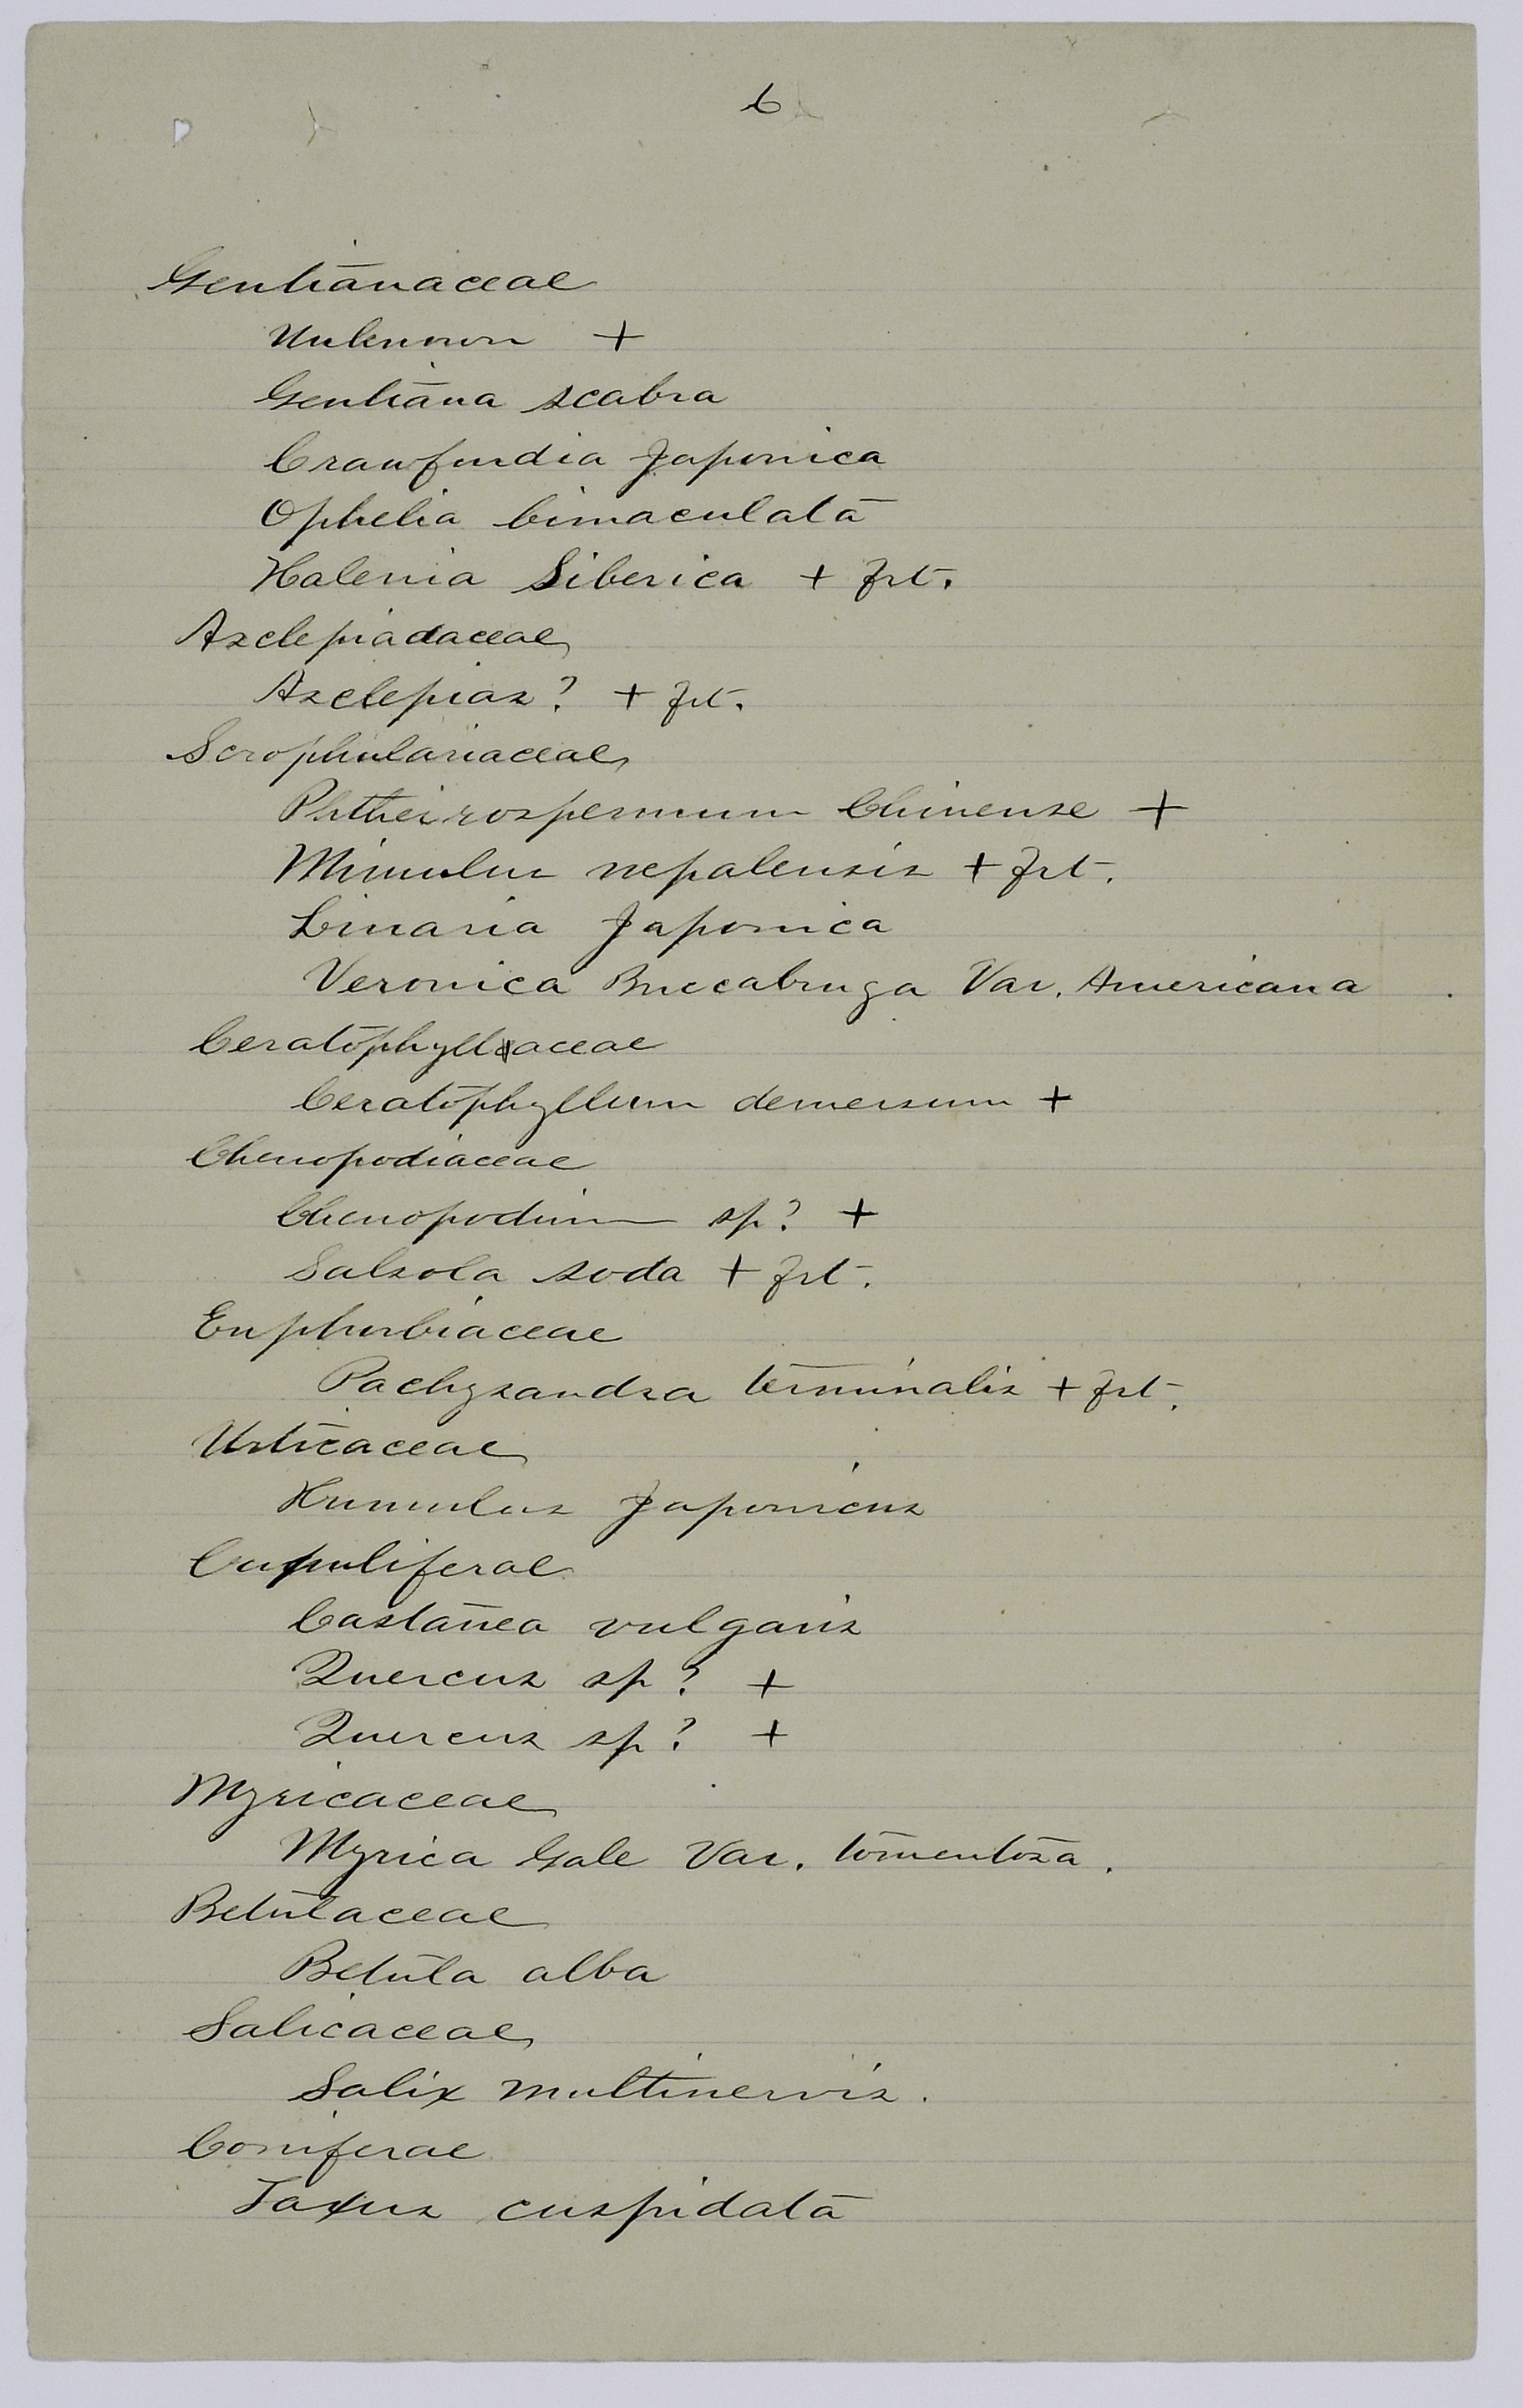 6
Gentianaceae
Unknown +
Gentiana scabra
Crawfurdia Japonica
Ophelia bimaculata
Halenia Siberica + frt.
Asclepiadaceae
Asclepias? + frt.
Scrophulariaceae
Phtheirospermum Chinense +
Mimulus nepalensis + frt.
Linaria Japonica
Veronica Buccabunga Var. Americana
Ceratophyllaceae
Ceratophyllum demersum +
Chenopodiaceae
Chenopodium sp? +
Salsola soda + frt.
Euphorbiaceae
Pachysandra terminalis + frt.
Urticaceae
Humulus Japonicus
Cupuliferae
Castanea vulgaris
Quercus sp? +
Quercus sp? +
Myricaceae
Myrica Gale Var. tomentosa.
Betulaceae
Betula alba
Salicaceae
Salix multinervis.
Coniferae
Taxus cuspidata